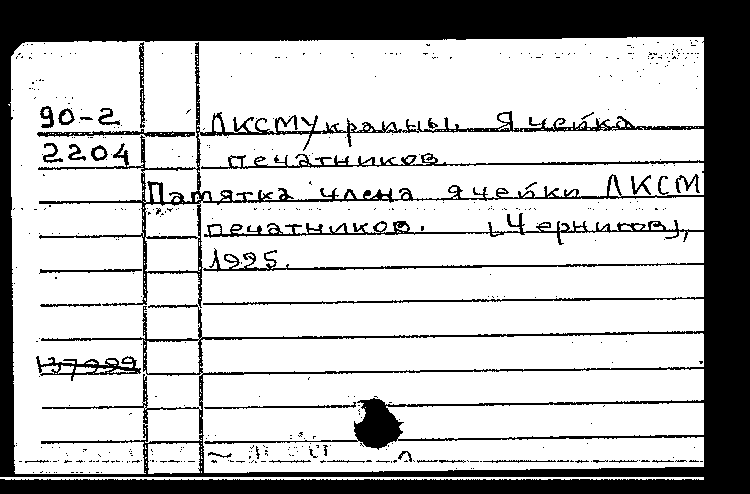 90-2 ЛКСМУкраины. Ячейка
2204 печатников.
Памятка члена ячейки ЛКСМ
печатников. [Чернигов],
1925.
137999